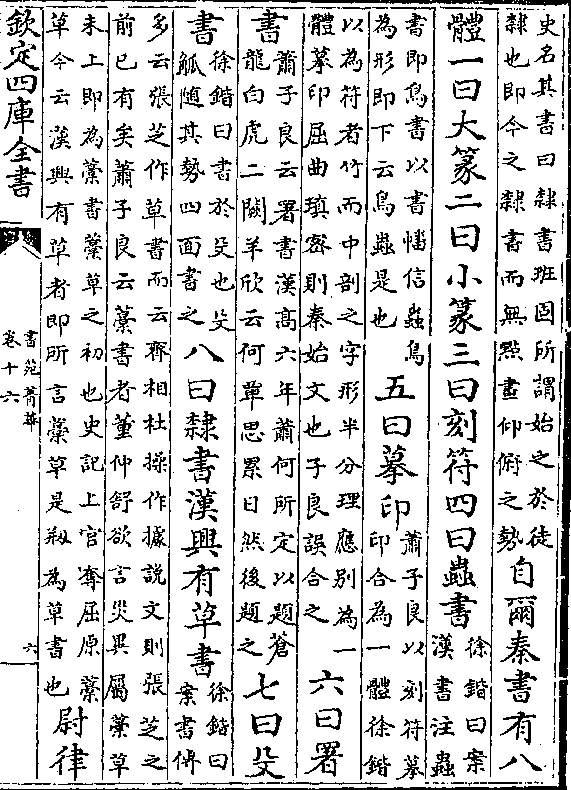 史名其書曰隸書班固所謂始之於徒
隸也即今之隸書而無㸃畫仰俯之勢
自爾秦書有八
體一曰大篆二曰小篆三曰刻符四曰蟲書
徐鍇曰案
漢書注蟲
書即鳥書以書幡信蟲鳥
為形即下云鳥蟲是也
五曰摹印
蕭子良以刻符摹
印合為一體徐鍇
以為符者竹而中剖之字形半分理應別為一
體摹印屈曲瑱密則秦始文也子良誤合之
六曰署
書
蕭子良云署書漢髙六年蕭何所定以題蒼
龍白虎二闕羊欣云何覃思累日然後題之
七曰殳
書
徐鍇曰書於殳也殳
觚隨其勢四面書之
八曰隸書漢興有草書
徐鍇曰
案書傳
多云張芝作草書而云齊相杜操作據說文則張芝之
前已有矣蕭子良云藁書者董仲舒欲言災異屬藁草
未上即為藁書藁草之初也史記上官奪屈原藁
草今云漢興有草者即所言藁草是剏為草書也
尉律
欽定四庫全書
書苑菁華
卷十六
六